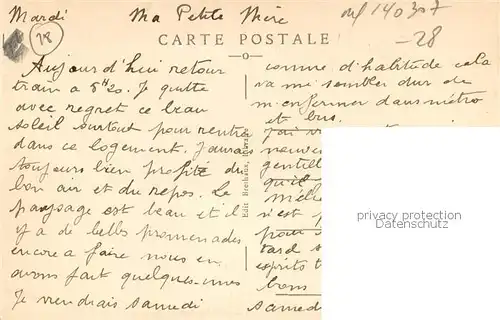 Mardi Ma Petite Mère
nf 140307
-28
78
CARTE POSTALE
Aujourd'hui retour
train à 5H20. Je quitte
avec regret ce beau
soleil surtout pour rentrer
dans ce logement. J'aurais
toujours bien profité du
bon air et du repos. Le
paysage est beau et il
y a de belles promenades
encore a faire nous en
avons fait quelques-unes
Je viendrais samedi
Edit. Brethaux,
comme d'habitude cela
va me sembler dur de
m'enfermer dans métro
et bus.
J'ai
gentill
qu'il
n'est p
pour
tard s
esprits t
bons
samed
privacy protection
Datenschutz